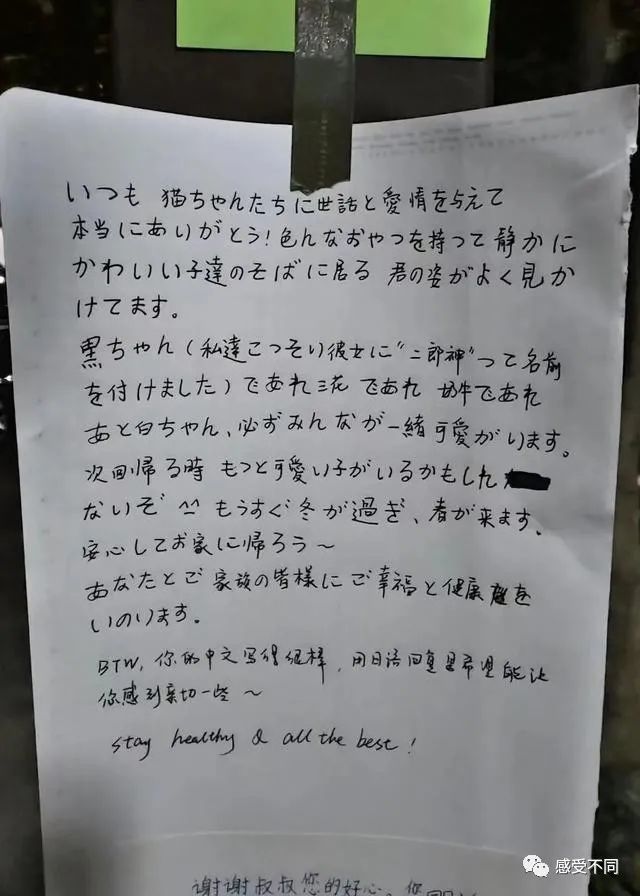 いつも 猫ちゃんたちに世話と愛情を与えて
本当にありがとう！色んなおやつを持って静かに
かわいい子達のそばに居る 君の姿がよく見か
けてます。
黒ちゃん（私達こっそり彼女に"二郎神"って名前
を付けました）であれ三花であれ 奶牛であれ
あと白ちゃん、必ずみんなが一緒可愛がいます。
次回帰る時 もっと可愛い子がいるかもしれ
ないぞ ^^ もうすぐ冬が過ぎ、春が来ます。
安心してお家に帰ろう～
あなたとご家族の皆様にご幸福と健康を
いのります。
BTW, 你的中文写得很棒，用日语回复是希望能让
你感到亲切一些～
stay healthy & all the best!
谢谢叔叔您的好心。您
感受不同